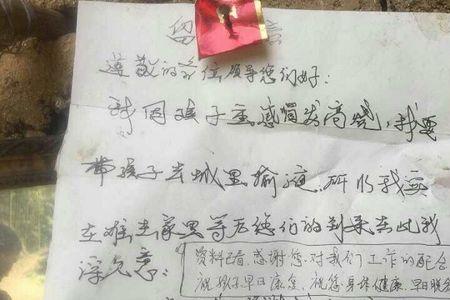 留 言
尊敬的各位领导您们好:
我因孩子重感冒发高烧,我要
带孩子去城里输液.所以我要
在难在家里等无您们的到来在此我
深允意:
资料已看,感谢您,对我们工作的配合
祝孩子早日康
祝您身体健康
早日脱